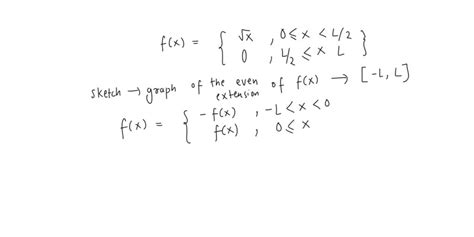 f(x) = { √x , 0 ≤ x < L/2
0 , L/2 ≤ x L }
sketch → graph of the even extension of f(x) → [-L, L]
f(x) = { -f(x) , -L < x < 0
f(x) , 0 ≤ x